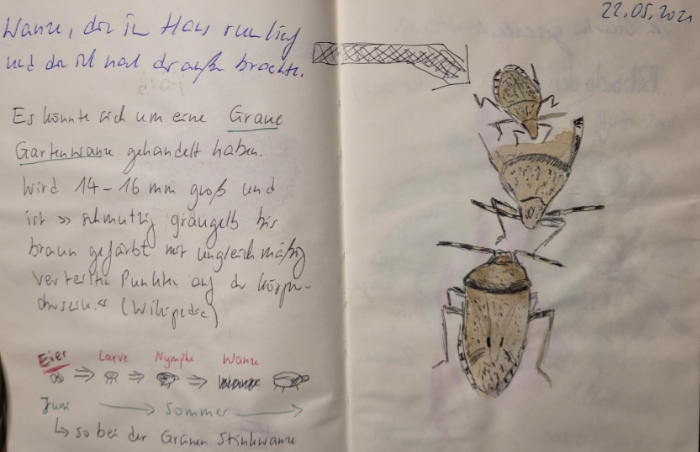 22.05.2021
Wanze, die in Haus rumlief
und die ich nach draußen brachte.
Es könnte sich um eine Graue
Gartenwanze gehandelt haben.
Wird 14-16 mm groß und
ist » schmutzig graugelb bis
braun gefärbt mit ungleichmäßig
verteilten Punkten auf der Körper-
oberseite." (Wikipedia)
Eier Larve Nymphe Wanze
⇒ ⇒ ⇒
Juni → Sommer →
↳ so bei der Grünen Stinkwanze